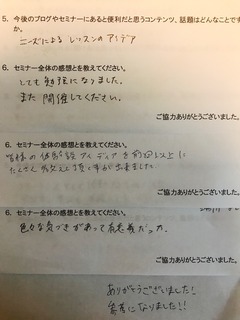 5. 今後のブログやセミナーにあると便利だと思うコンテンツ、話題はどんなことです
か。
ニーズによる レッスンの アイデア
6. セミナー全体の感想とを教えてください。
とても勉強になりました。
また 開催してください。
ご協力ありがとうございました。
6. セミナー全体の感想とを教えてください。
皆様の体験談 アイディアを前回以上に
たくさん 教えて頂く事が出来ました。
ご協力ありがとうございました。
6. セミナー全体の感想とを教えてください。
色々な気づきがあって有意義だった。
ご協力ありがとうございました。
ありがとうございました!
参考になりました!!